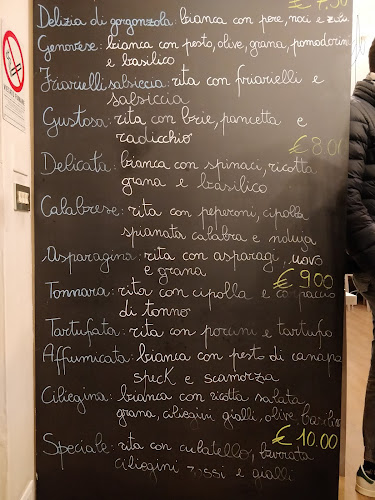 € 7.50
Delizia di gorgonzola: bianca con pere, noci e
Genovese: bianca con pesto, olive, grana, pomodorini
e basilico
Friarielli salsiccia: rita con friarielli e
salsiccia
Gustosa: rita con brie, pancetta e
radicchio
€ 8.00
Delicata: bianca con spinaci, ricotta
grana e basilico
Calabrese: rita con peperoni, cipolla
spianata calabra e nduja
Asparagina: rita con asparagi, uovo
e grana
€ 9.00
Tonnara: rita con cipolla e carpaccio
di tonno
Tartufata: rita con porcini e tartufo
Affumicata: bianca con pesto di canapa
speck e scamorza
Ciliegina: bianca con ricotta salata,
grana, ciliegini gialli, olive, basilico
€ 10.00
Speciale: rita con culatello, burrata
ciliegini rossi e gialli